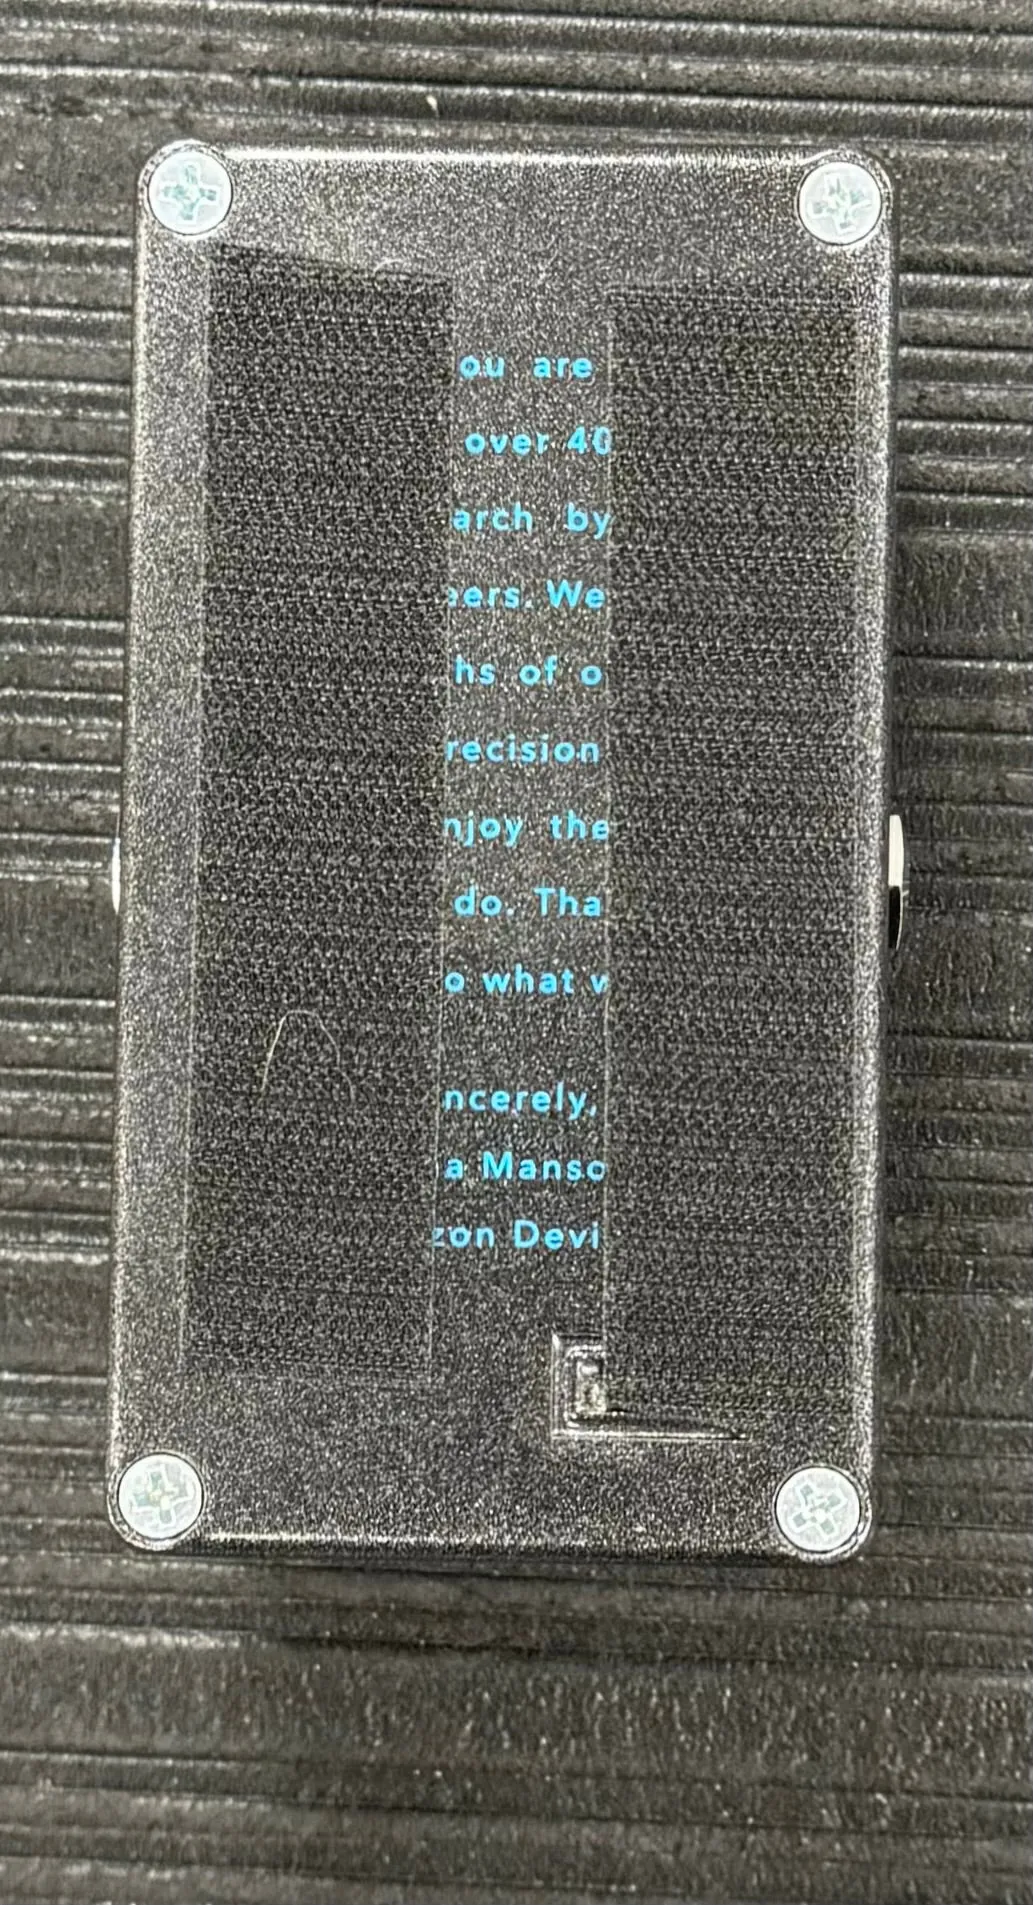 ou are
over 40
arch by
ers. We
hs of o
recision
njoy the
do. Tha
o what
ncerely,
a Manso
zon Devi